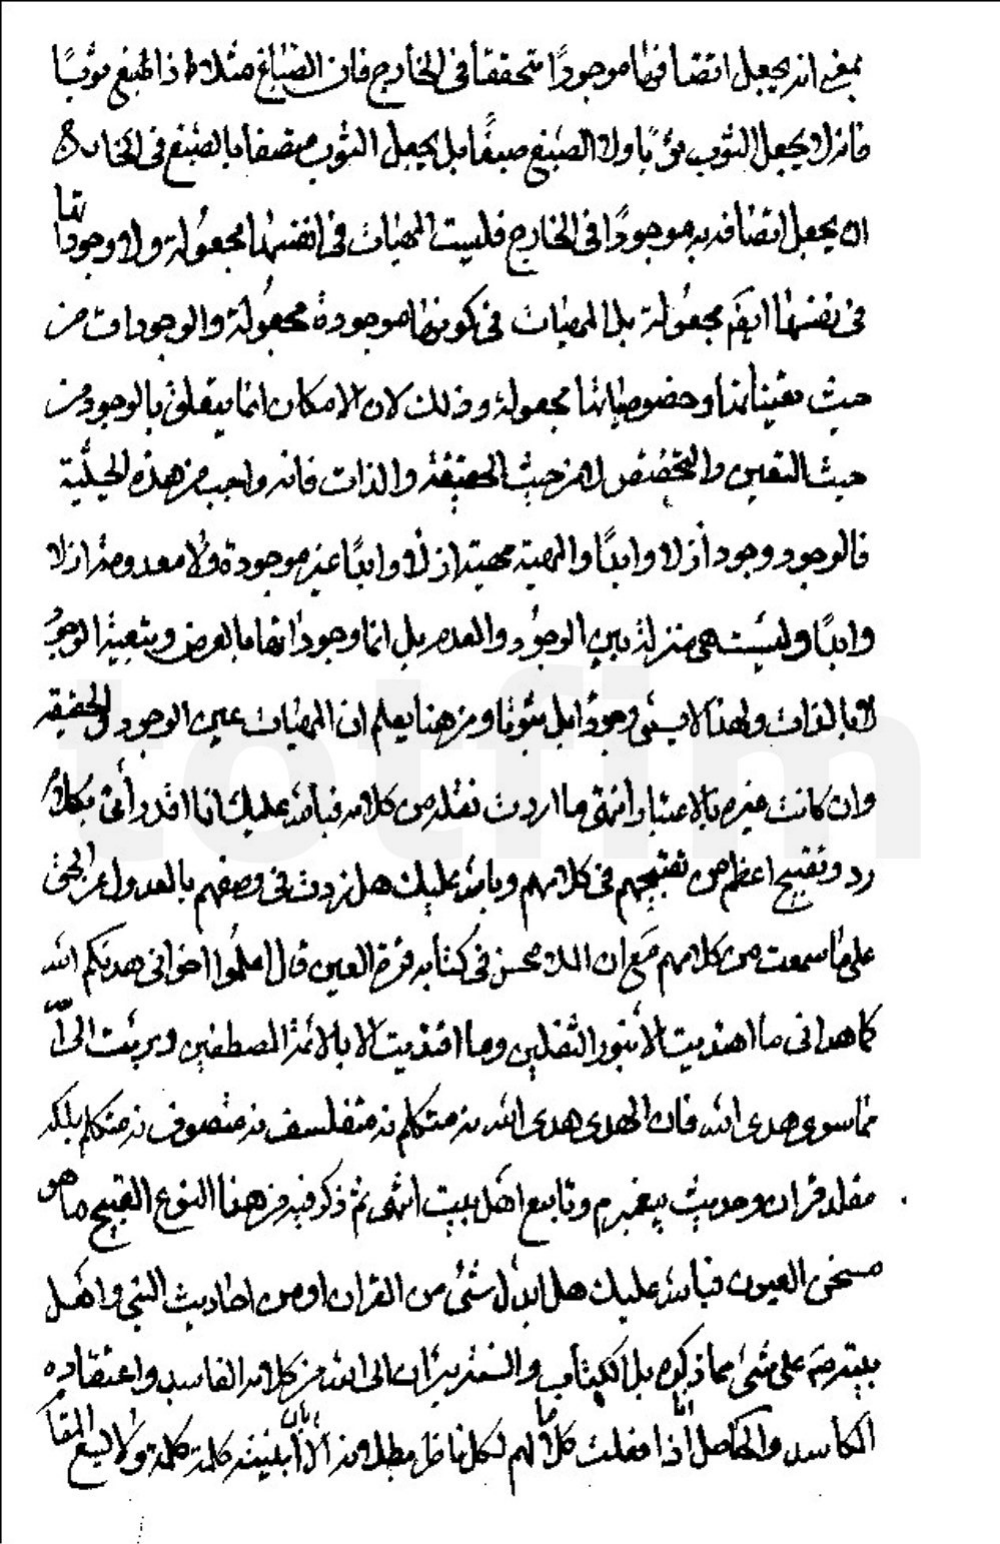 بمعنى انه يجعل اتصافها موجودًا متحققا فى الخارج فان الصباغ مثلا اذا صبغ ثوبًا
فانه لا يجعل الثوب ثوبًا ولا الصبغ صبغًا بل يجعل الثوب متصفا بالصبغ فى الخارج
ان يجعل اتصافه به موجودًا فى الخارج فليست المهيات فى انفسها مجعولة ولا وجوداتها
فى نفسها ايضم مجعولة بل المهيات فى كونها موجودة مجعولة والوجودات من
حيث تعيناتها وخصوصياتها مجعولة وذلك لان الامكان انما يتعلق بالوجود من
حيث التعين والتخصص لا من حيث الحقيقة والذات فانه واجب من هذه الحيثية
فالوجود وجود أزلا وابدًا والمهية مهية ازلًا وابدًا غير موجودة ولا معدومة ازلا
وابدًا وليست هى منزلة بين الوجود والعدم بل انما وجوداتها بالعرض وبتعية الوجود
لا بالذات ولهذا لا يسمى وجودًا بل ثبوتا ومن هنا يعلم ان المهيات عين الوجود فى الحقيقة
وان كانت غيره بالاعتبار انتهى ما اردت نقله من كلامه فبالله عليك انا اقدر أتى بكلام
رد وتقبيح اعظم من تقبيحهم فى كلامهم وبالله عليك هل زدت فى وصفهم بالعدول عن الحق
على ما سمعت من كلامهم مع ان الملا محسن فى كتابه قرة العين قال اعلموا اخوانى هديكم الله
كما هدانى ما اهتديت الا بنور الثقلين وما اقتديت الا بالائمة المصطفين وبرئت الى الله
مما سوى هدى الله فان الهدى هدى الله نه متكلم نه متفلسف نه متصوف نه متكلم بلكه
مقلد قران وحديث پيغمبرم وتابع اهل بيت انتهى ثم ذكر فيه من هذا النوع القبيح ما هو
مسخن العيون فبالله عليك هل يدل شئ من القران او من احاديث النبى واهل
بيته صم على شئ مما ذكره بل الكتاب والسنة بريئان الى الله من كلامه الفاسد واعتقاده
الكاسد والحاصل أنا اذا نقلت كلاما لهم لكل ناظر مطلع فانه الا ان ابينه كلمة كلمة ولا يسع المقام